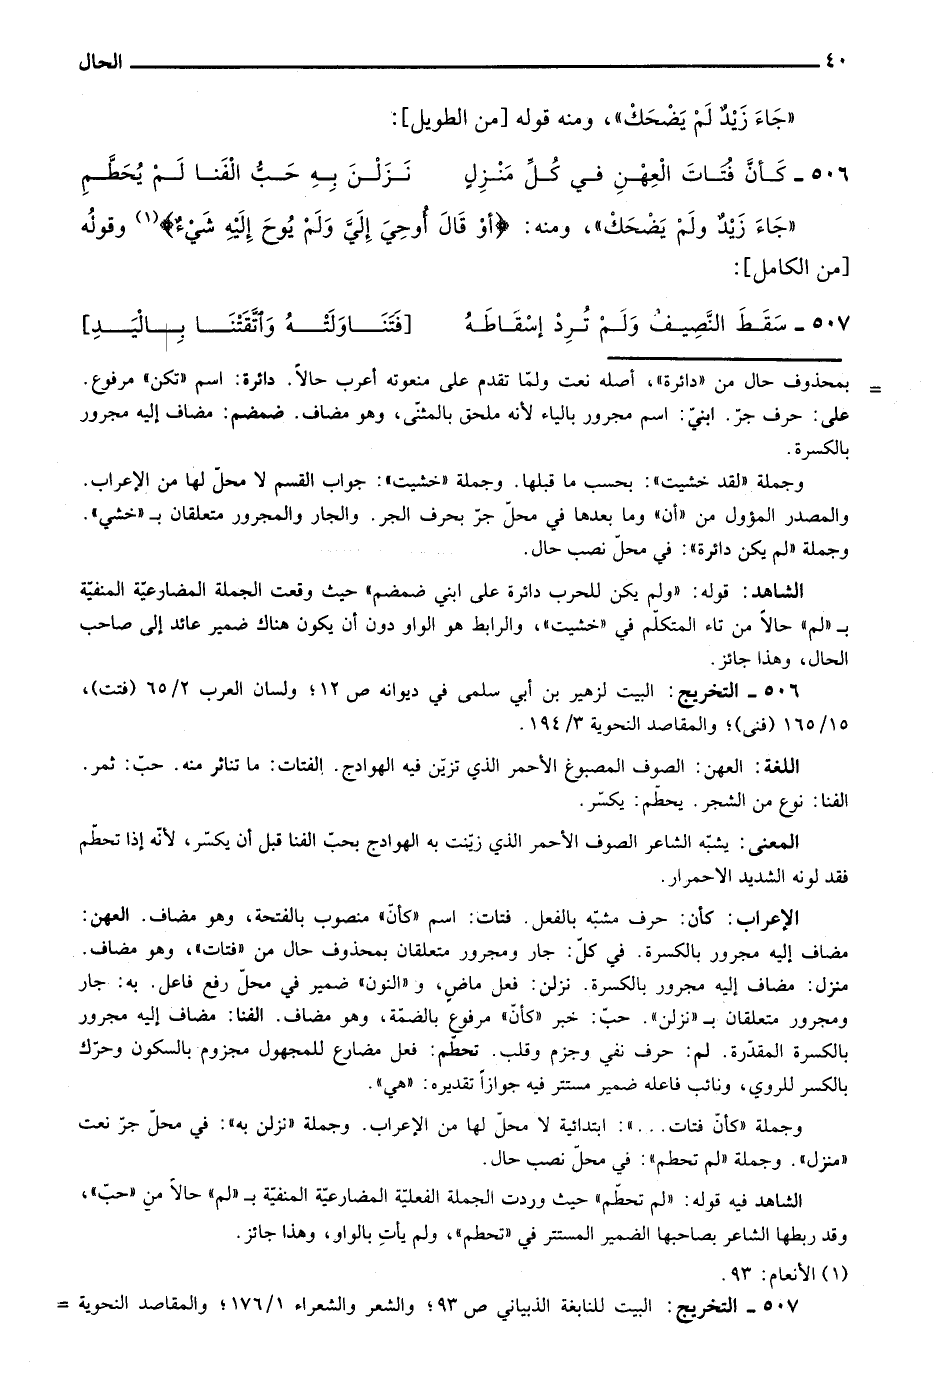 ٤٠ الحال
«جَاءَ زَيْدٌ لَمْ يَضْحَكْ»، ومنه قوله [من الطويل]:
٥٠٦ ـ كَأنَّ فُتَاتَ الْعِهْنِ في كُلِّ مَنْزِلٍ نَزَلْنَ بِهِ حَبُّ الْفَنا لَمْ يُحَطَّمِ
«جَاءَ زَيْدٌ ولَمْ يَضْحَكْ»، ومنه: ﴿أوْ قَالَ أُوحِيَ إلَيَّ وَلَمْ يُوحَ إلَيْهِ شَيْءٌ﴾(١) وقولُه
[من الكامل]:
٥٠٧ ـ سَقَطَ النَّصِيفُ وَلَمْ تُرِدْ إسْقَاطَهُ [فَتَنَاوَلَتْهُ وَٱتَّقَتْنَا بِالْيَدِ]
= بمحذوف حال من «دائرة»، أصله نعت ولمّا تقدم على منعوته أعرب حالاً. دائرة: اسم «تكن» مرفوع.
على: حرف جرّ. ابنيّ: اسم مجرور بالياء لأنه ملحق بالمثنّى، وهو مضاف. ضمضم: مضاف إليه مجرور
بالكسرة.
وجملة «لقد خشيت»: بحسب ما قبلها. وجملة «خشيت»: جواب القسم لا محلّ لها من الإعراب.
والمصدر المؤول من «أن» وما بعدها في محلّ جرّ بحرف الجر. والجار والمجرور متعلقان بـ «خشي».
وجملة «لم يكن دائرة»: في محلّ نصب حال.
الشاهد: قوله: «ولم يكن للحرب دائرة على ابني ضمضم» حيث وقعت الجملة المضارعيّة المنفيّة
بـ «لم» حالاً من تاء المتكلّم في «خشيت»، والرابط هو الواو دون أن يكون هناك ضمير عائد إلى صاحب
الحال، وهذا جائز.
٥٠٦ ـ التخريج: البيت لزهير بن أبي سلمى في ديوانه ص ١٢؛ ولسان العرب ٢/ ٦٥ (فتت)،
١٥/ ١٦٥ (فنى)؛ والمقاصد النحوية ٣/ ١٩٤.
اللغة: العهن: الصوف المصبوغ الأحمر الذي تزيّن فيه الهوادج. الفتات: ما تناثر منه. حبّ: ثمر.
الفنا: نوع من الشجر. يحطّم: يكسّر.
المعنى: يشبّه الشاعر الصوف الأحمر الذي زيّنت به الهوادج بحبّ الفنا قبل أن يكسّر، لأنّه إذا تحطّم
فقد لونه الشديد الاحمرار.
الإعراب: كأن: حرف مشبّه بالفعل. فتات: اسم «كأنّ» منصوب بالفتحة، وهو مضاف. العهن:
مضاف إليه مجرور بالكسرة. في كلّ: جار ومجرور متعلقان بمحذوف حال من «فتات»، وهو مضاف.
منزل: مضاف إليه مجرور بالكسرة. نزلن: فعل ماضٍ، و «النون» ضمير في محلّ رفع فاعل. به: جار
ومجرور متعلقان بـ «نزلن». حبّ: خبر «كأنّ» مرفوع بالضمّة، وهو مضاف. الفنا: مضاف إليه مجرور
بالكسرة المقدّرة. لم: حرف نفي وجزم وقلب. تحطّم: فعل مضارع للمجهول مجزوم بالسكون وحرّك
بالكسر للروي، ونائب فاعله ضمير مستتر فيه جوازاً تقديره: «هي».
وجملة «كأنّ فتات...»: ابتدائية لا محلّ لها من الإعراب. وجملة «نزلن به»: في محلّ جرّ نعت
«منزل». وجملة «لم تحطم»: في محلّ نصب حال.
الشاهد فيه قوله: «لم تحطّم» حيث وردت الجملة الفعليّة المضارعيّة المنفيّة بـ «لم» حالاً من «حبّ»،
وقد ربطها الشاعر بصاحبها الضمير المستتر في «تحطم»، ولم يأتِ بالواو، وهذا جائز.
(١) الأنعام: ٩٣.
٥٠٧ ـ التخريج: البيت للنابغة الذبياني ص ٩٣؛ والشعر والشعراء ١/ ١٧٦؛ والمقاصد النحوية =